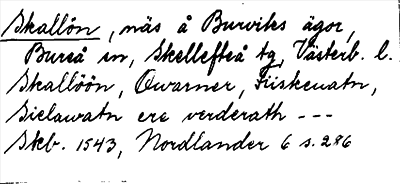 Skallön, näs å Burviks ägor,
Bureå sn, Skellefteå tg, Västerb. l.
Skallöön, Qwarner, Fiiskeuatn,
Sielawatn ere verderath ---
Skb. 1543, Nordlander 6 s. 286